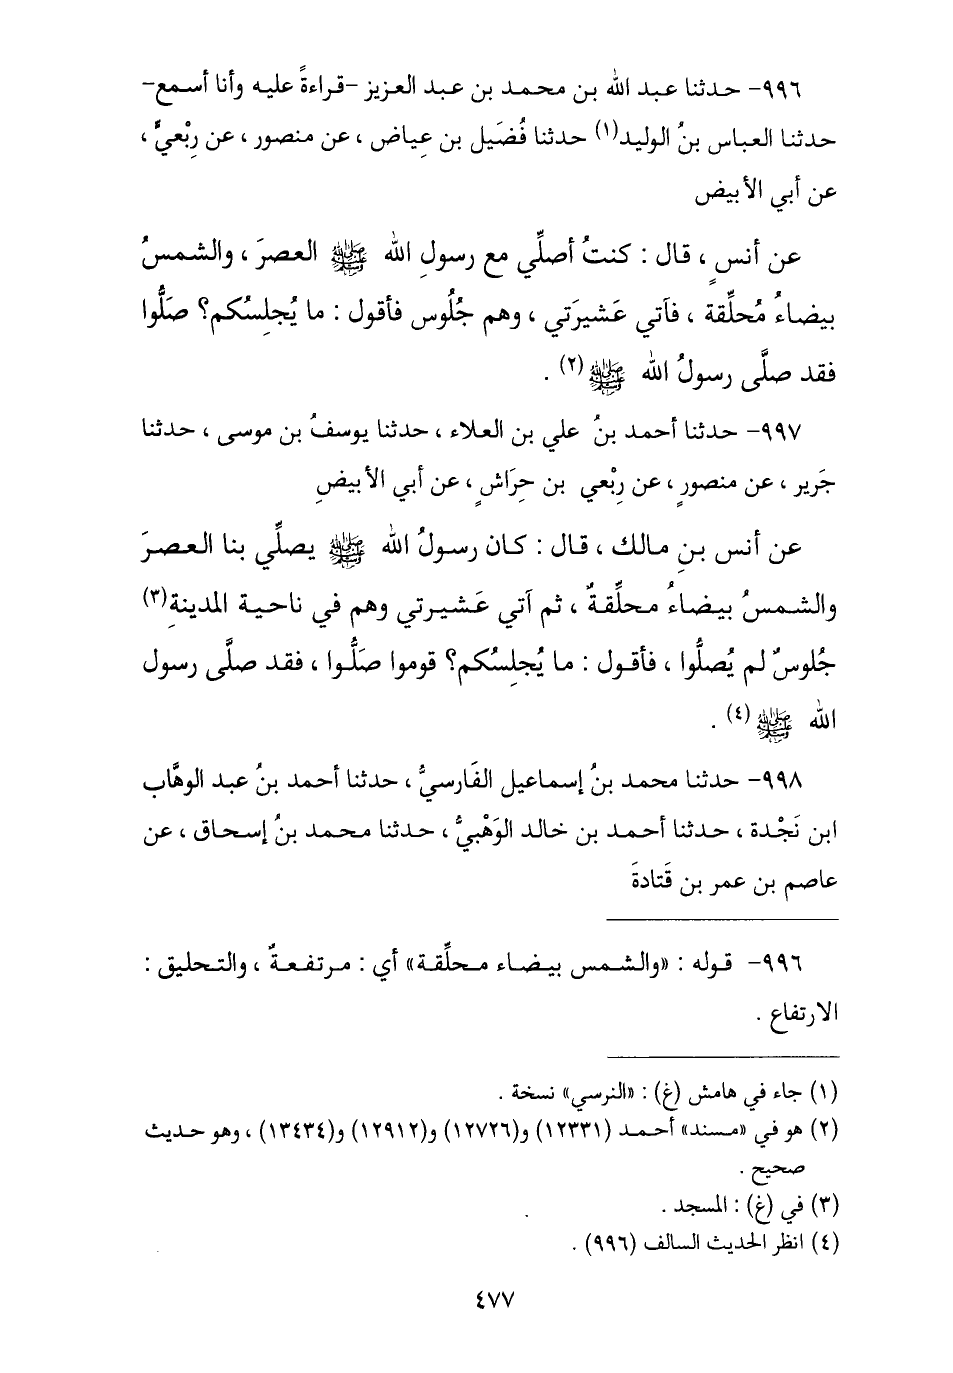 ٩٩٦- حدثنا عبد الله بن محمد بن عبد العزيز -قراءةً عليه وأنا أسمع-
حدثنا العباس بنُ الوليد(١) حدثنا فُضَيل بن عِياض ، عن منصور ، عن رِبْعيٍّ ،
عن أبي الأبيض
عن أنسٍ ، قال : كنتُ أصلِّي مع رسولِ الله ﷺ العصرَ ، والشمسُ
بيضاءُ مُحلِّقة ، فآتي عَشيرَتي ، وهم جُلُوس فأقول : ما يُجلِسُكم؟ صَلُّوا
فقد صلَّى رسولُ الله ﷺ(٢) .
٩٩٧- حدثنا أحمد بنُ علي بن العلاء ، حدثنا يوسفُ بن موسى ، حدثنا
جَرير ، عن منصورٍ ، عن رِبْعي بن حِرَاشٍ ، عن أبي الأبيضِ
عن أنس بنِ مالك ، قال : كان رسولُ الله ﷺ يصلِّي بنا العصرَ
والشمسُ بيضاءُ محلِّقةٌ ، ثم آتي عَشيرتي وهم في ناحية المدينةِ(٣)
جُلوسٌ لم يُصلُّوا ، فأقول : ما يُجلِسُكم؟ قوموا صَلُّوا ، فقد صلَّى رسول
الله ﷺ(٤) .
٩٩٨- حدثنا محمد بنُ إسماعيل الفَارسيُّ ، حدثنا أحمد بنُ عبد الوهَّاب
ابن نَجْدة ، حدثنا أحمد بن خالد الوَهْبيُّ ، حدثنا محمد بنُ إسحاق ، عن
عاصم بن عمر بن قَتادةَ
٩٩٦- قوله : «والشمس بيضاء محلِّقة» أي : مرتفعةٌ ، والتحليق :
الارتفاع .
(١) جاء في هامش (غ) : «النرسي» نسخة .
(٢) هو في «مسند» أحمد (١٢٣٣١) و(١٢٧٢٦) و(١٢٩١٢) و(١٣٤٣٤) ، وهو حديث
صحيح .
(٣) في (غ) : المسجد .
(٤) انظر الحديث السالف (٩٩٦) .
٤٧٧